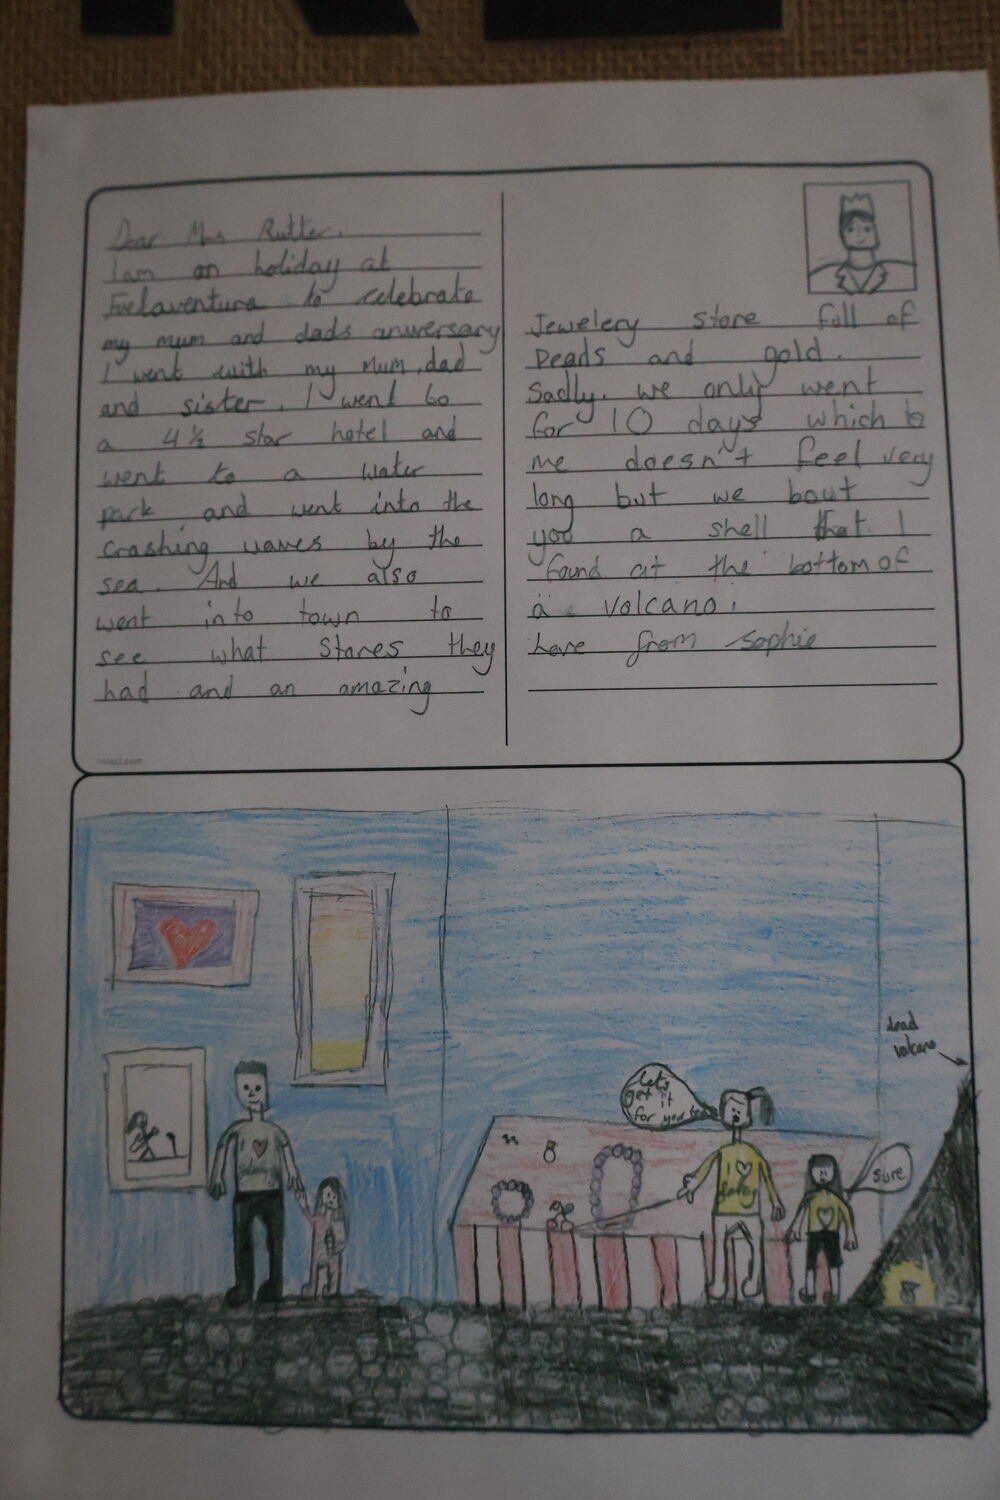 Dear Mrs Rutter.
I am on holiday at
Fuelaventura to celebrate
my mum and dads anwersary
I went with my Mum, dad
and sister. I went to
a 4½ star hotel and
went to a water
park and went into the
crashing waves by the
sea. And we also
went into town to
see what Stores they
had and an amazing
Jewelery store full of
Peads and gold.
Sadly. we only went
for 10 days which to
me doesn't feel very
long but we bout
you a shell that I
found at the bottom of
a volcano.
Love from Sophie
twinkl.com
dead
volcano
lets
get it
for your
sure
I